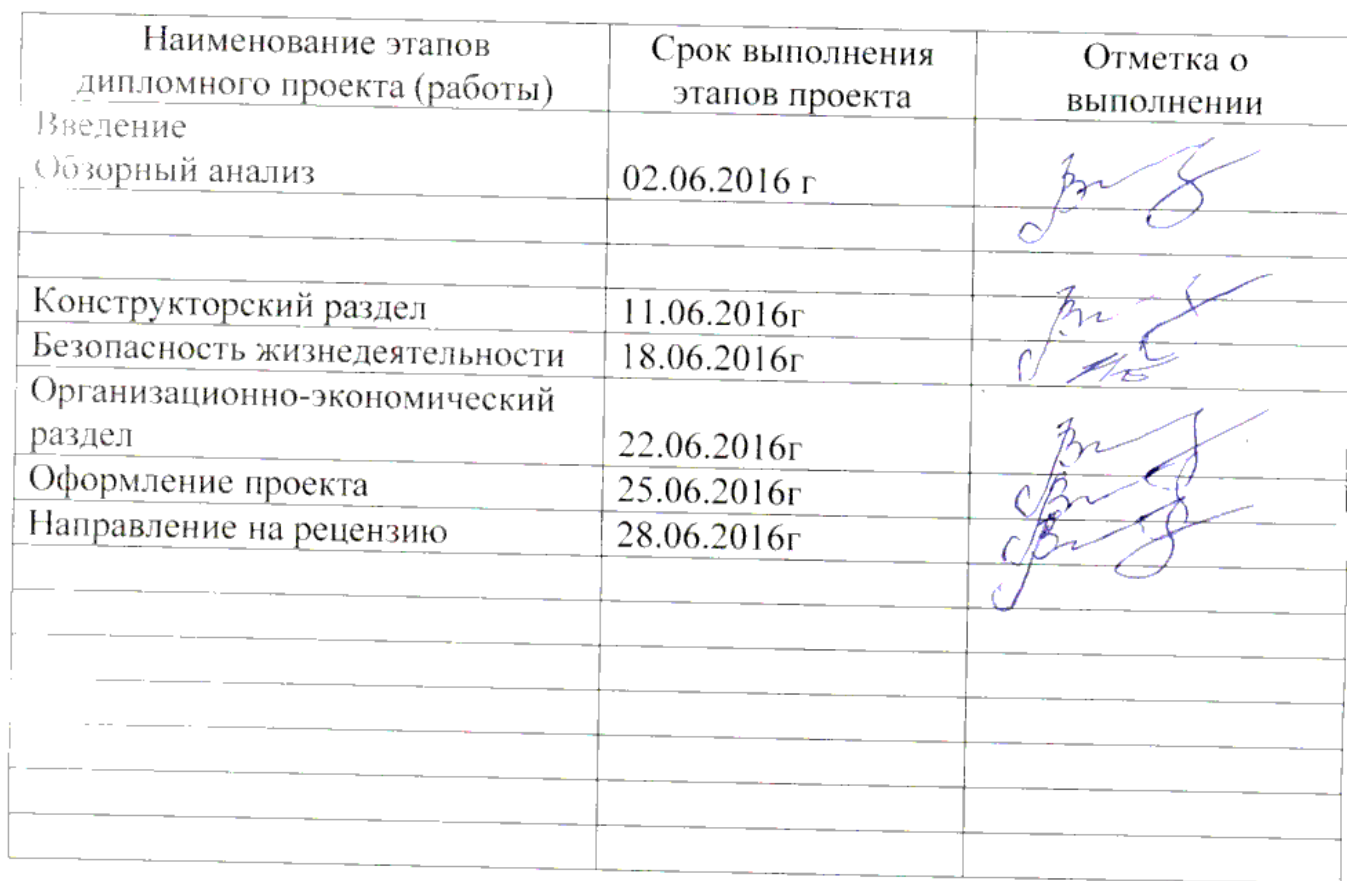 Наименование этапов
дипломного проекта (работы)
Срок выполнения
этапов проекта
Отметка о
выполнении
Введение
Обзорный анализ
02.06.2016 г
Конструкторский раздел
11.06.2016г
Безопасность жизнедеятельности
18.06.2016г
Организационно-экономический
раздел
22.06.2016г
Оформление проекта
25.06.2016г
Направление на рецензию
28.06.2016г